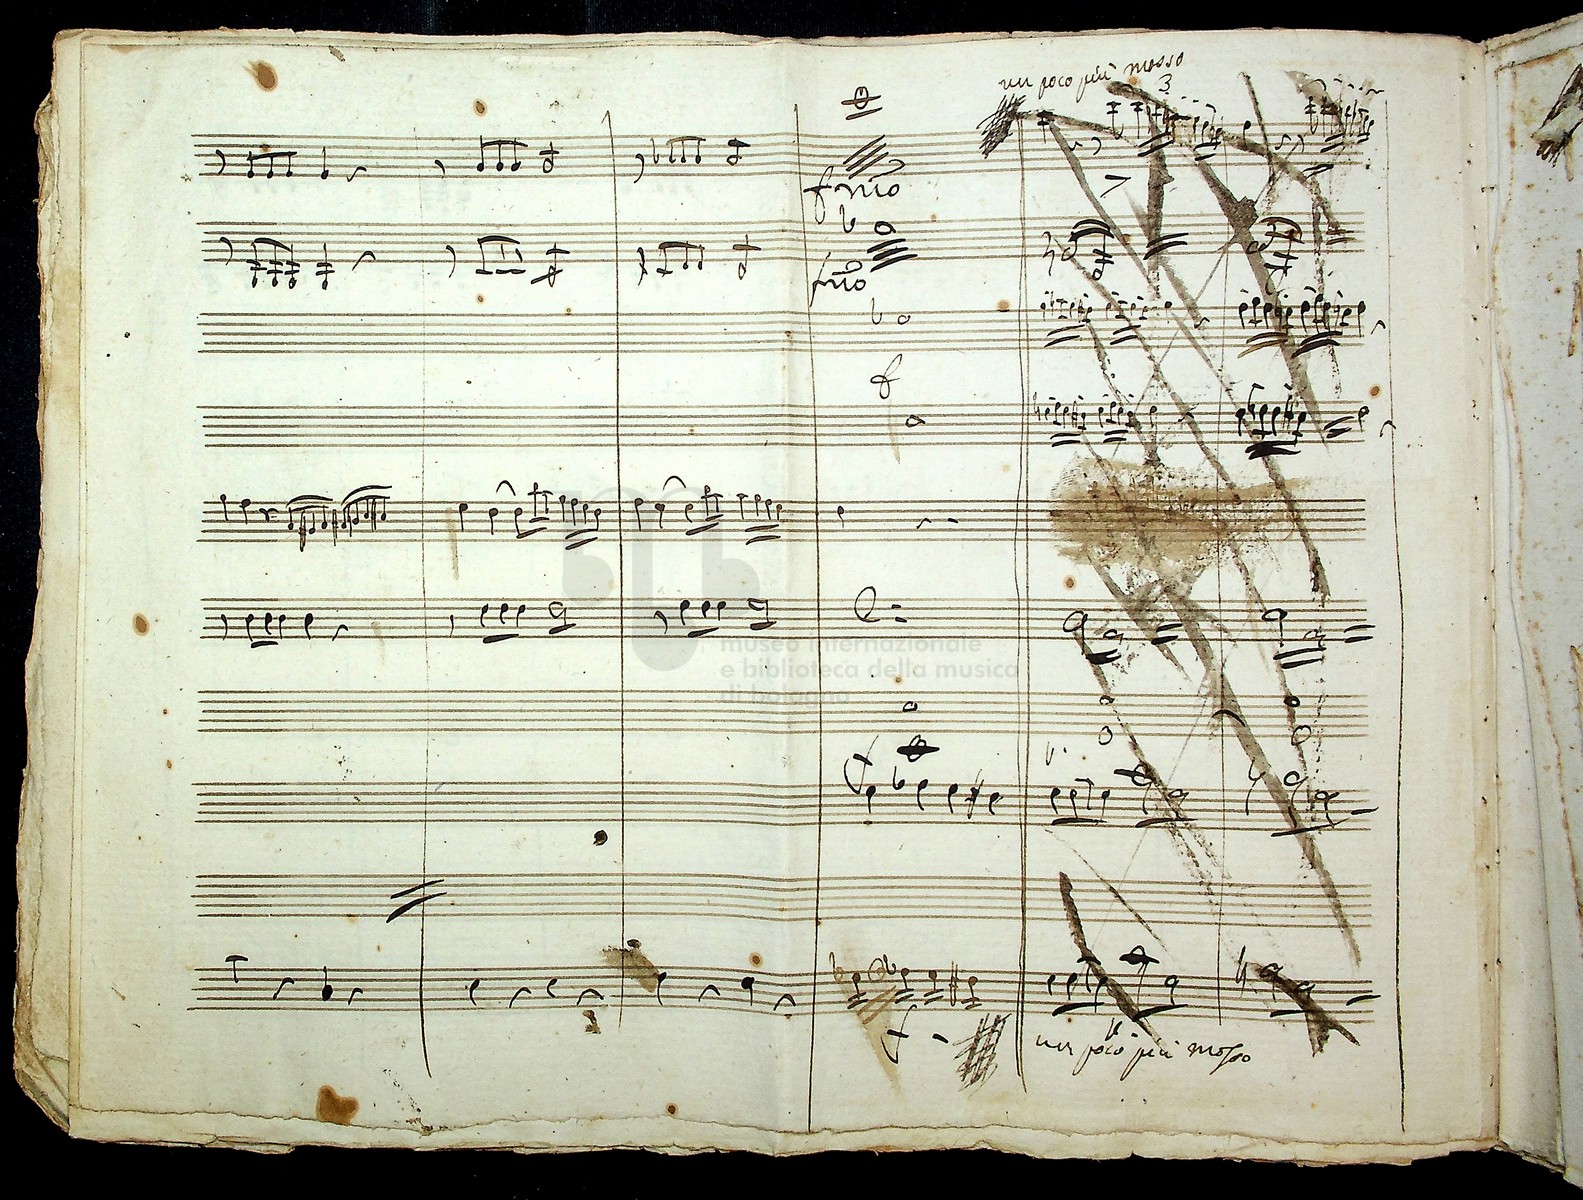 un poco più mosso
3
f mo
f mo
f
museo internazionale
e biblioteca della musica
di bologna
f
un poco più mosso